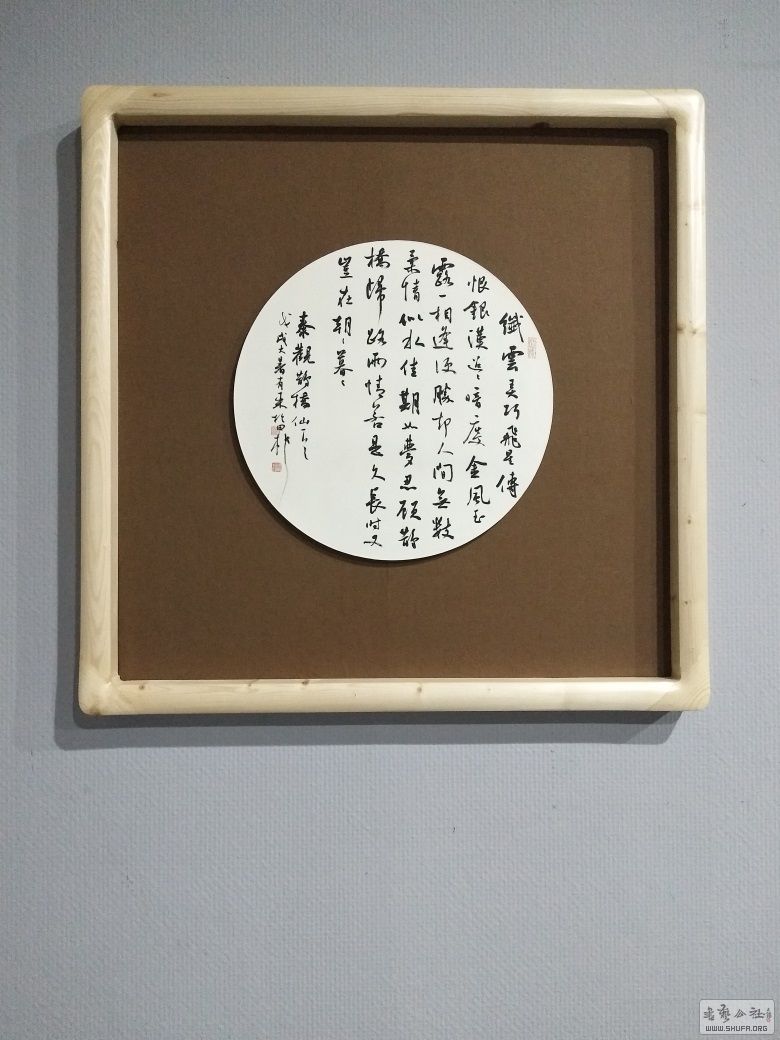 纖雲弄巧飛星傳
恨銀漢迢〻暗度金風玉
露一相逢便勝却人間無數
柔情似水佳期如夢忍顧鵲
橋歸路兩情若是久長时又
豈在朝〻暮〻
秦觀鵲橋仙
戊戌大暑
書藝公社
WWW.SHUFA.ORG